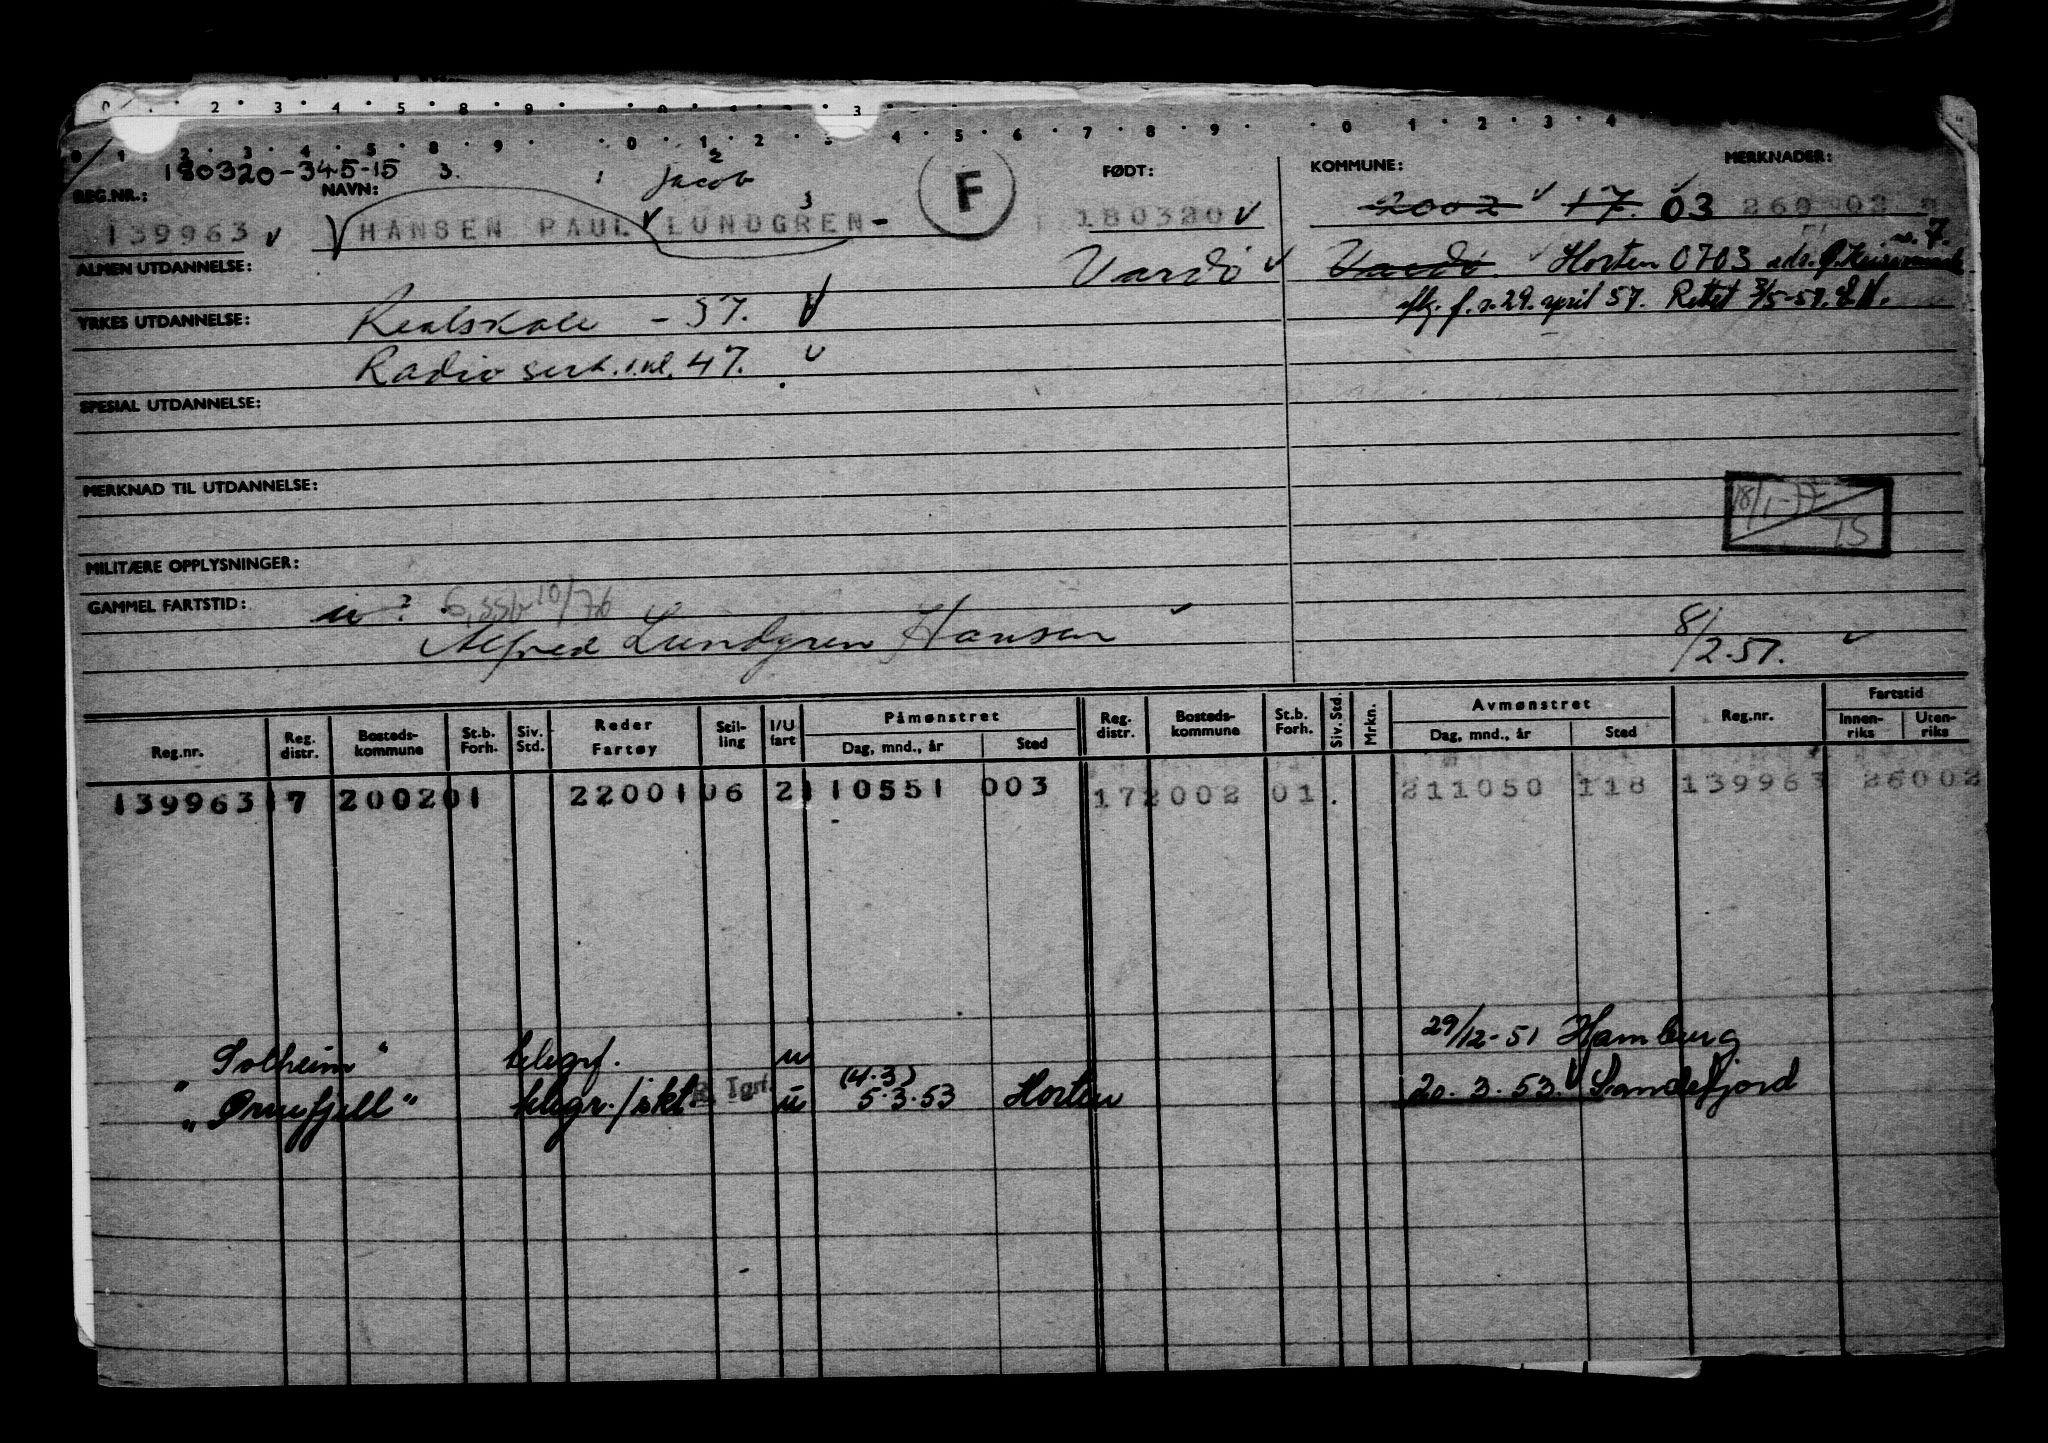 180320-345-15 3. Jacob 2
REG.NR.: NAVN: FØDT: KOMMUNE: MERKNADER:
139963 HANSEN PAUL LUNDGREN - 3 F 180320 2002 17. 03 269 02
ALMEN UTDANNELSE: Vardö Vardö Horten 0703 adr.
YRKES UTDANNELSE: Realskole - 37. f. n. 29. april 57. Rettet 3/5-57.
Radio sert. 1.kl. 47.
SPESIAL UTDANNELSE:
MERKNAD TIL UTDANNELSE:
18/1-77
TS
MILITÆRE OPPLYSNINGER:
GAMMEL FARTSTID: u ? 10/76
Alfred Lundgren Hansen 8/2.57.
Reg.nr. Reg. distr. Bosteds- kommune St.b. Forh. Siv. Std. Reder Fartøy Stil- ling I/U fart Påmønstret Dag, mnd., år Sted Reg. distr. Bosteds- kommune St.b. Forh. Siv. Std. Mrkn. Avmønstret Dag, mnd., år Sted Reg.nr. Fartstid Innen- riks Uten- riks
139963 17 2002 01 22001 06 2 110551 003 17 2002 01 . 211050 118 139963 26002
"Solheim" telegrf. u 29/12-51 Hamburg
"Ørnefjell" telegr./skt R. Tgrf. u (4.3) 5.3.53 Horten 20.3.53. Sandefjord